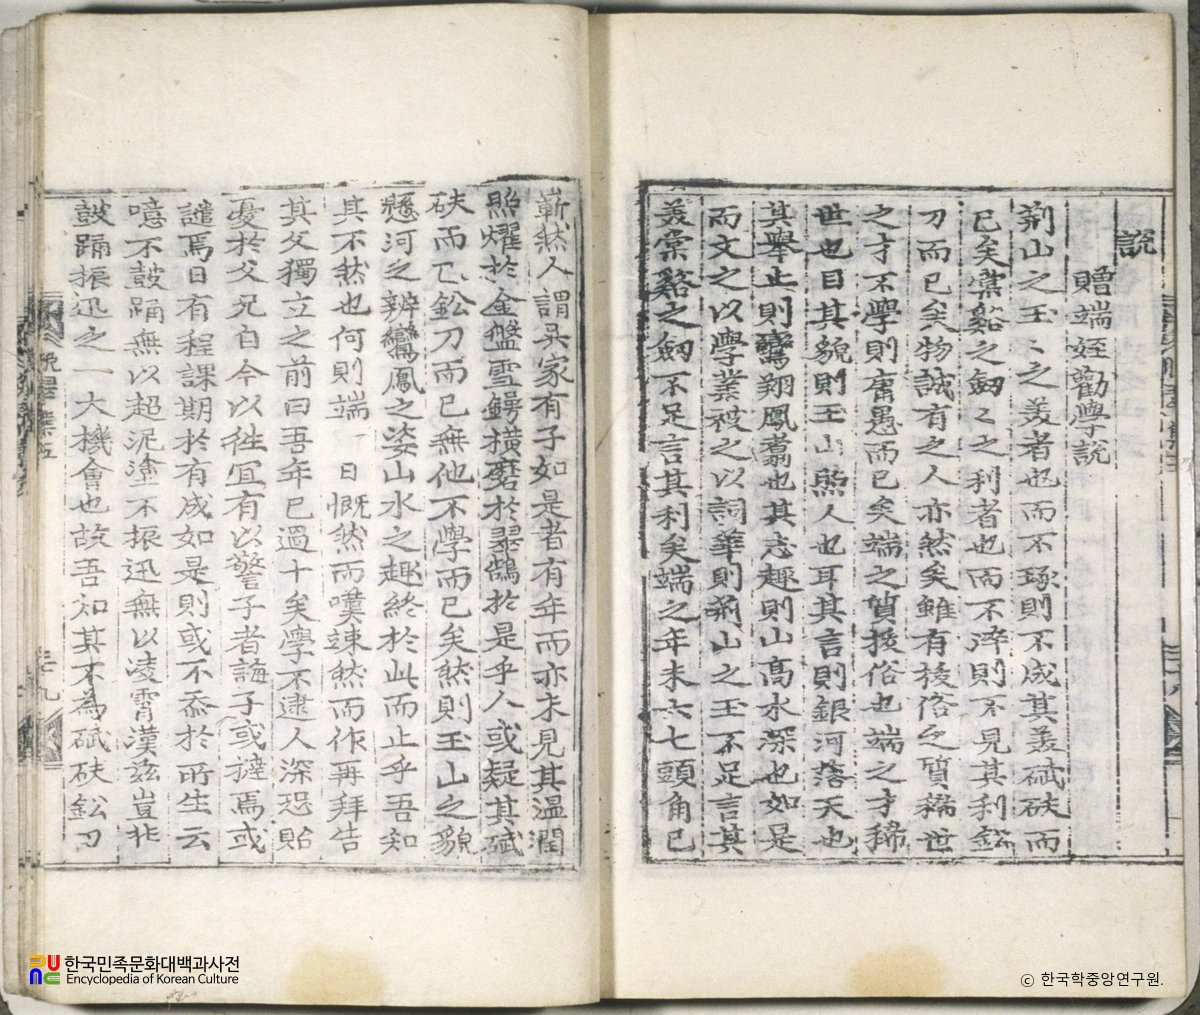 說
贈端姪勸學說
荊山之玉〻之美者也而不琢則不成其美碔砆而
已矣棠谿之劒〻之利者也而不淬則不見其利鈆
刀而已矣物誠有之人亦然矣雖有拔俗之質稀世
之才不學則庸愚而已矣端之質拔俗也端之才稀
世也目其貌則玉山照人也耳其言則銀河落天也
其擧止則鸞翔鳳翥也其志趣則山高水深也如是
而文之以學業被之以詞華則荊山之玉不足言其
美棠谿之劒不足言其利矣端之年未六七頭角已
嶄然人謂吳家有子如是者有年而亦未見其溫潤
照耀於金盤雪鍔橫磨於鸊鵜於是乎人或疑其碔
砆而已鈆刀而已無他不學而已矣然則玉山之貌
懸河之辨鸞鳳之姿山水之趣終於此而止乎吾知
其不然也何則端一日慨然而嘆竦然而作再拜告
其父獨立之前曰吾年已過十矣學不逮人深恐貽
憂於父兄自今以徃宜有以警子者誨子或撻焉或
譴焉日有程課期於有成如是則或不忝於所生云
噫不鼓踊無以超泥塗不振迅無以凌霄漢玆豈非
鼓踊振迅之一大機會也故吾知其不為碔砆鈆刀
卷五
九
한국민족문화대백과사전
Encyclopedia of Korean Culture
ⓒ 한국학중앙연구원.